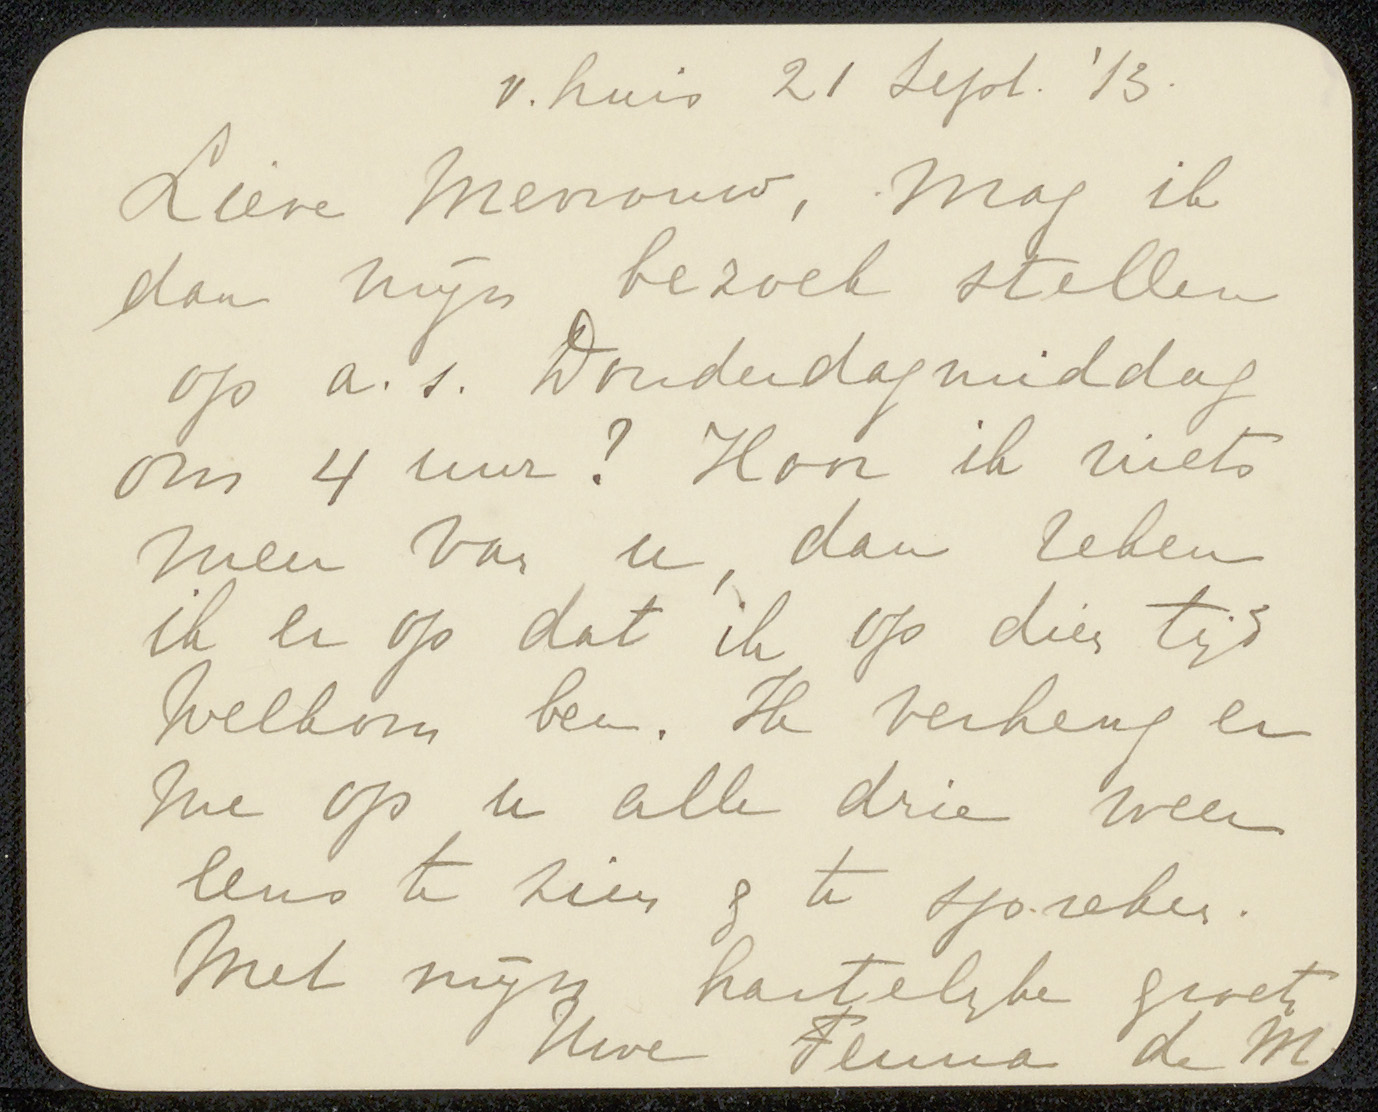 v. huis 21 Sept. '13.
Lieve Mevrouw, Mag ik
dan mijn bezoek stellen
op a.s. Donderdagmiddag
om 4 uur? Hoor ik niets
meer van u, dan reken
ik er op dat ik op dien tijd
welkom ben. Ik verheug er
me op u alle drie weer
eens te zien & te spreken.
Met mijn hartelijke groeten
Uwe Fenna de M